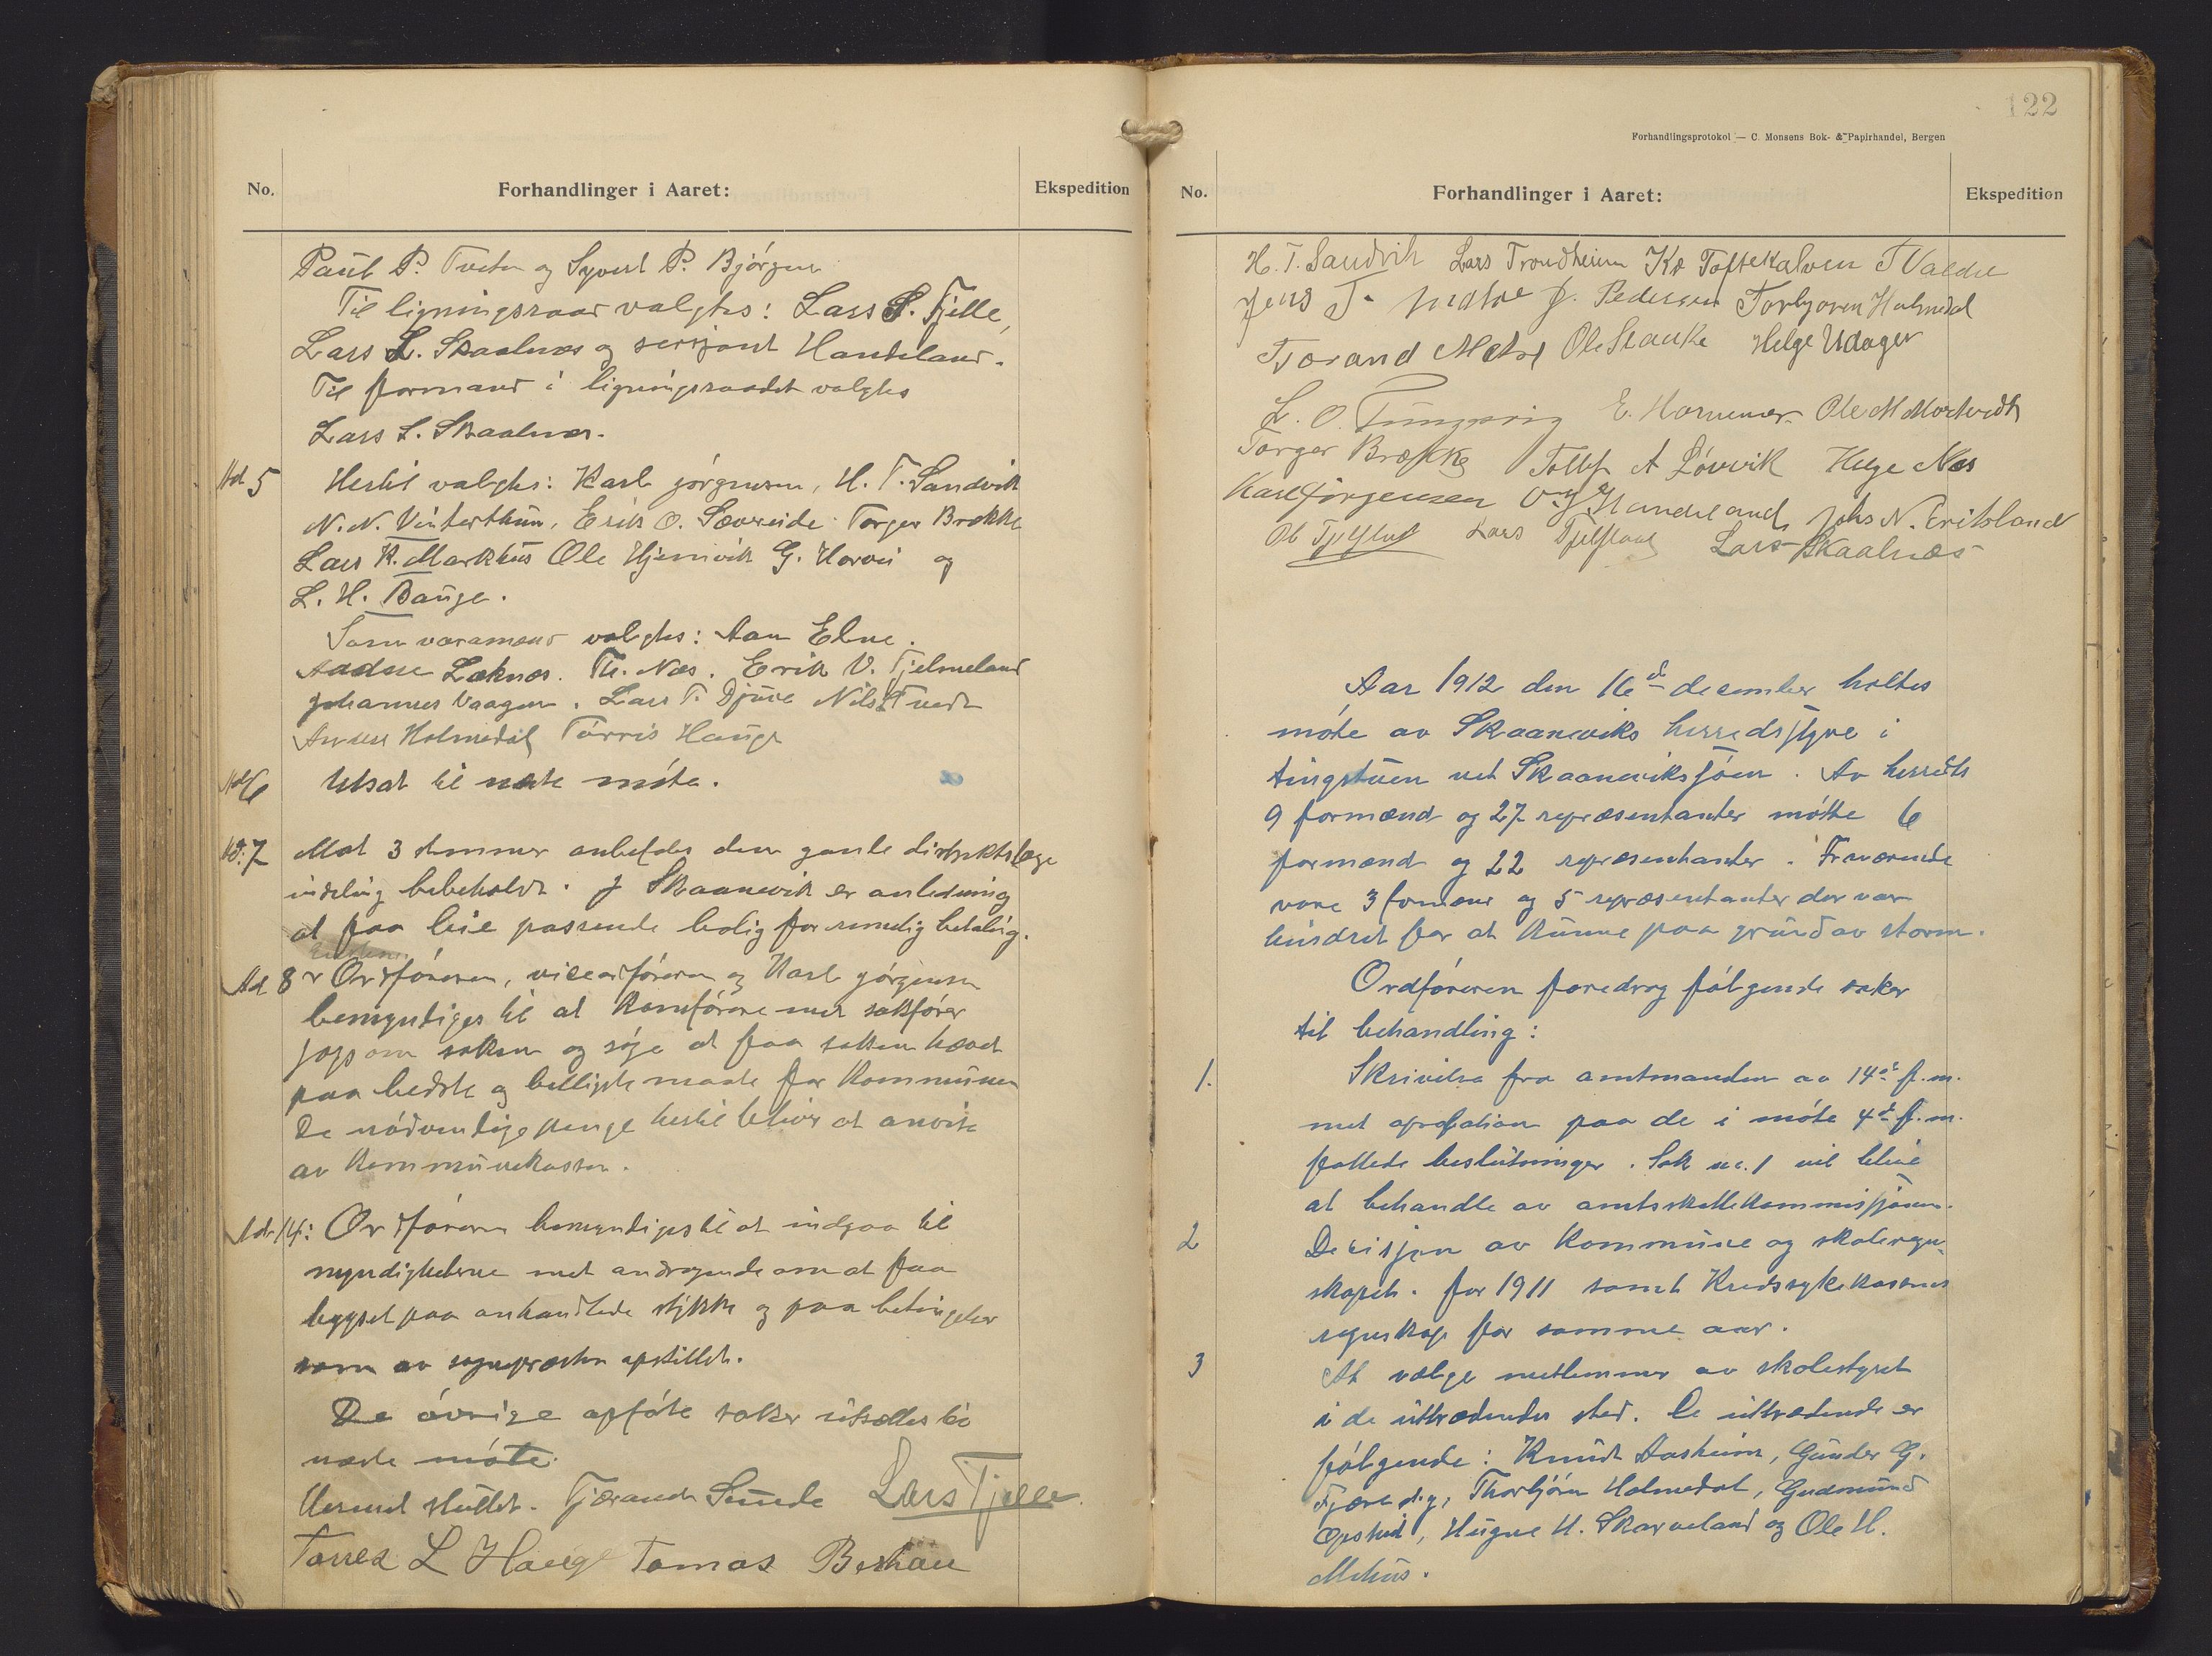 No.
Forhandlinger i Aaret:
Ekspedition
Paul P. Tveten og Syvert P. Bjørgen
Til ligningsraad valgtes: Lars S. Fjelle,
Lars L. Skaalnæs og sersjant Handeland.
Til formand i ligningsraadet valgtes
Lars L. Skaalnæs.
Ad 5 Hertil valgtes: Karl Jørgensen, H. T. Sandvik
N. N. Vinterthun, Erik O. Sævreide Torger Brekke
Lars K. Markhus Ole Hjemvik G. Horvei og
L. H. Bauge.
Som varamænd valgtes: Aan Elne.
Læknæs. Th. Næs. Erik V. Fjelmeland
Johannes Vaagen. Lars T. Djuve Nils Tvedt
Holmedal Tørris Hauge
Ad 6 Utsat til næste møte.
Ad. 7 Mot 3 stemmer anbefales den gamle distriktslæge
indeling bibeholdt. I Skaanevik er anledning
at faa leie passende bolig for rimelig betaling.
Ad 8 Ordføreren, viceordføreren og Karl Jørgensen
bemyndiges til at konferere med sakfører
om saken og søge at faa saken hævet
paa bedste og billigste maate for kommunen
De nødvendige penge hertil blir at anvise
av kommunekassen.
Ad. 14: Ordføreren bemyndiges til at indgaa til
myndigheterne med andragende om at faa
bygsel paa omhandlede stykke og paa betingelser
som av sognepresten opstillet.
De øvrige opførte saker utsættes til
næste møte.
Hermed sluttet. Tjærand Sunde Lars Fjelle
Torres L Hauge Tomas
122
Forhandlingsprotokol — C. Monsens Bok- & Papirhandel, Bergen
No.
Forhandlinger i Aaret:
Ekspedition
H. T. Sandvik Lars Trondheim Kr Toftekalven T Valdre
Jens J. Matre J. Pedersen Torbjoren Holmedal
Tjorand Matre Ole Stauke Helge Udager
L. O. Tungesvig E. Hammer Ole M Mortvedt
Torger Brekke Tollef A Løvvik Helge Næs
Karl Jørgensen Handeland Johs N. Eritsland
Ol Fjelstad Lars Fjelstad Lars Skaalnæs
Aar 1912 den 16de december holtes
møte av Skaaneviks herredstyre i
tingstuen ved Skaanevikssjøen. Av herredets
9 formænd og 27 repræsentanter møtte 6
formænd og 22 repræsentanter. Fraværende
vare 3 formænd og 5 repræsentanter der var
hindret for at kunne paa grund av storm.
Ordføreren foredrog følgende saker
til behandling:
1. Skrivelse fra amtmanden av 14de f.m.
med aprobation paa de i møte 4de f.m.
fattede beslutninger. Sak nr. 1 vil blive
at behandle av amtsskattekommissjonen.
2 Decisjon av kommune og skoleregn-
skapet. for 1911 samt Kredssykekassens
regnskap for samme aar.
3 At vælge medlemmer av skolestyret
i de uttrædendes sted. De uttrædende er
følgende: Knut Aasheim, Gunder G.
Fjære, Thorbjørn Holmedal, Gudmund
Opsted, Hugne H. Skarveland og Ole H.
Mehus.